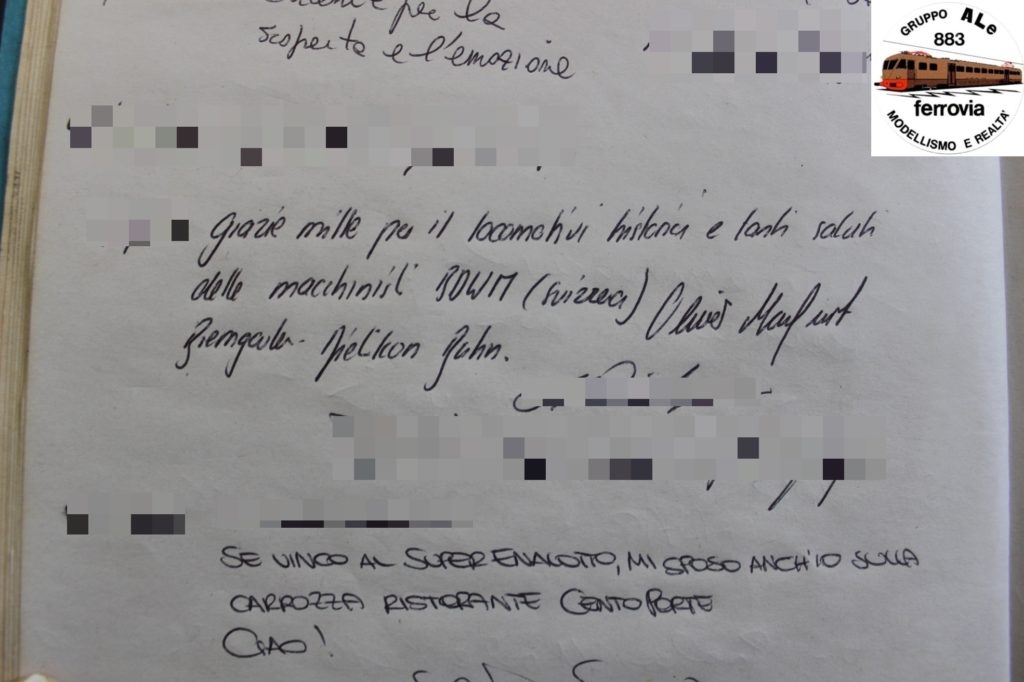 per la
scoperta e l'emozione
GRUPPO ALe
883
ferrovia
MODELLISMO E REALTA'
Grazie mille per il locomotivi historici e tanti saluti
delle macchinisti BDWM (Svizzera)
Bremgarten - Dietikon Bahn.
SE VINCO AL SUPERENALOTTO, MI SPOSO ANCH'IO SULLA
CARROZZA RISTORANTE CENTOPORTE
CIAO!